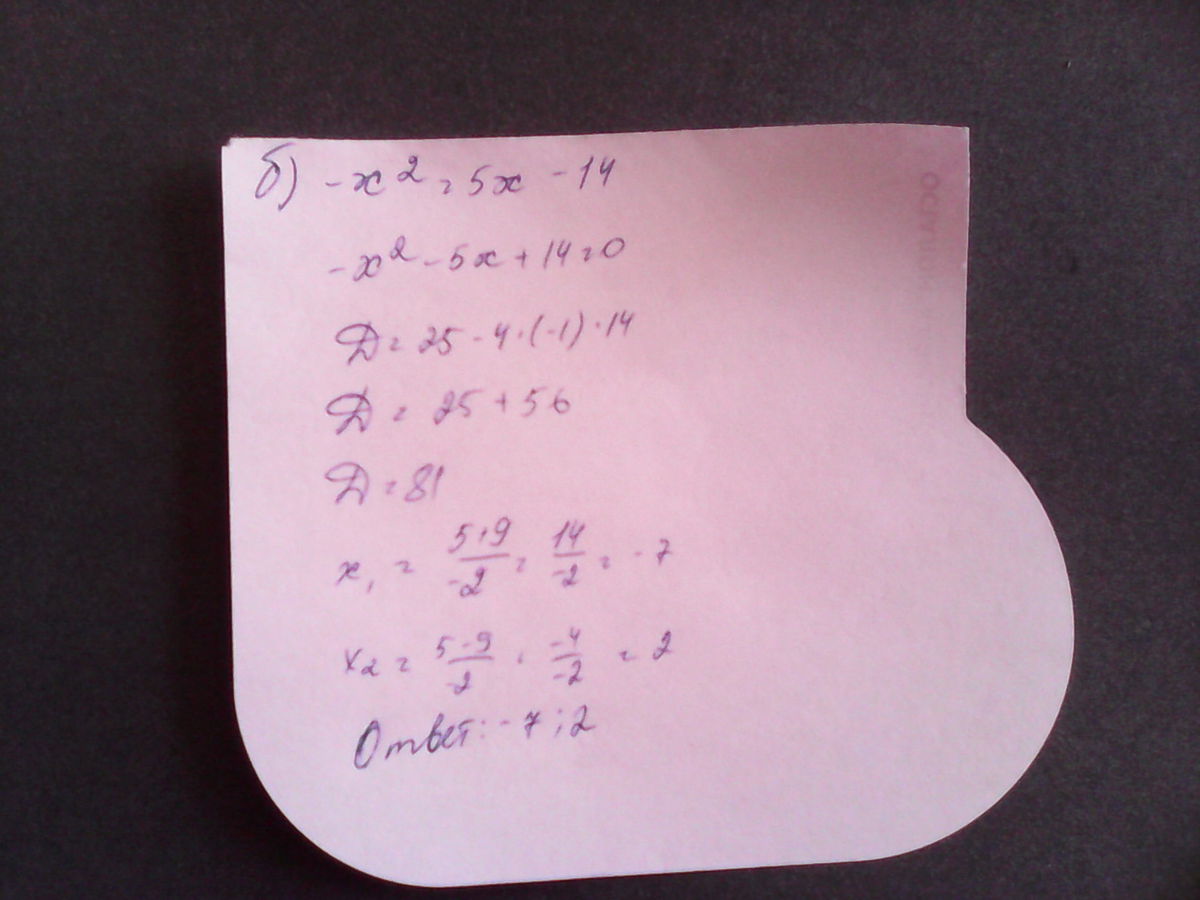 б) -x² = 5x - 14
-x² - 5x + 14 = 0
D = 25 - 4·(-1)·14
D = 25 + 56
D = 81
x₁ = (5+9)/(-2) = 14/(-2) = -7
x₂ = (5-9)/(-2) = (-4)/(-2) = 2
Ответ: -7; 2